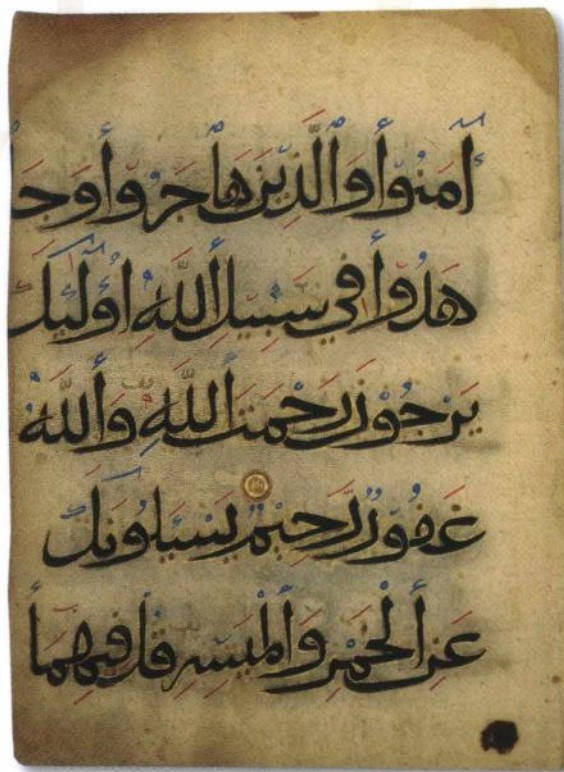 آمَنُوا وَالَّذِينَ هَاجَرُوا وَجَا
هَدُوا فِي سَبِيلِ اللَّهِ أُولَٰئِكَ
يَرْجُونَ رَحْمَتَ اللَّهِ وَاللَّهُ
غَفُورٌ رَحِيمٌ يَسْئَلُونَكَ
عَنِ الْخَمْرِ وَالْمَيْسِرِ قُلْ فِيهِمَا